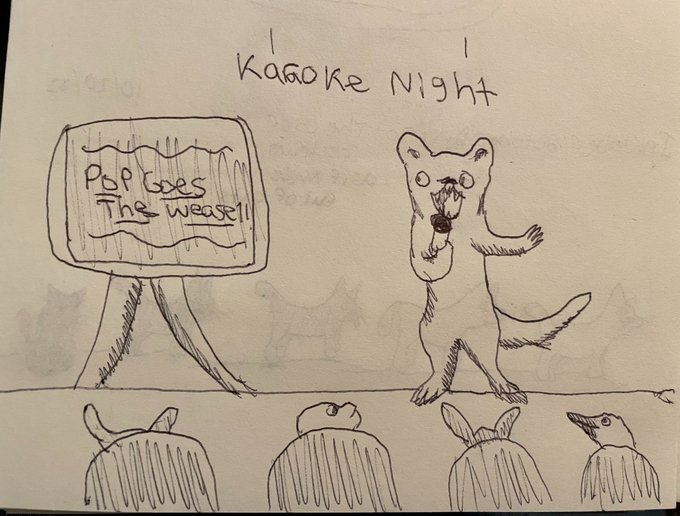 Karaoke Night
Pop Goes
The Weasel!